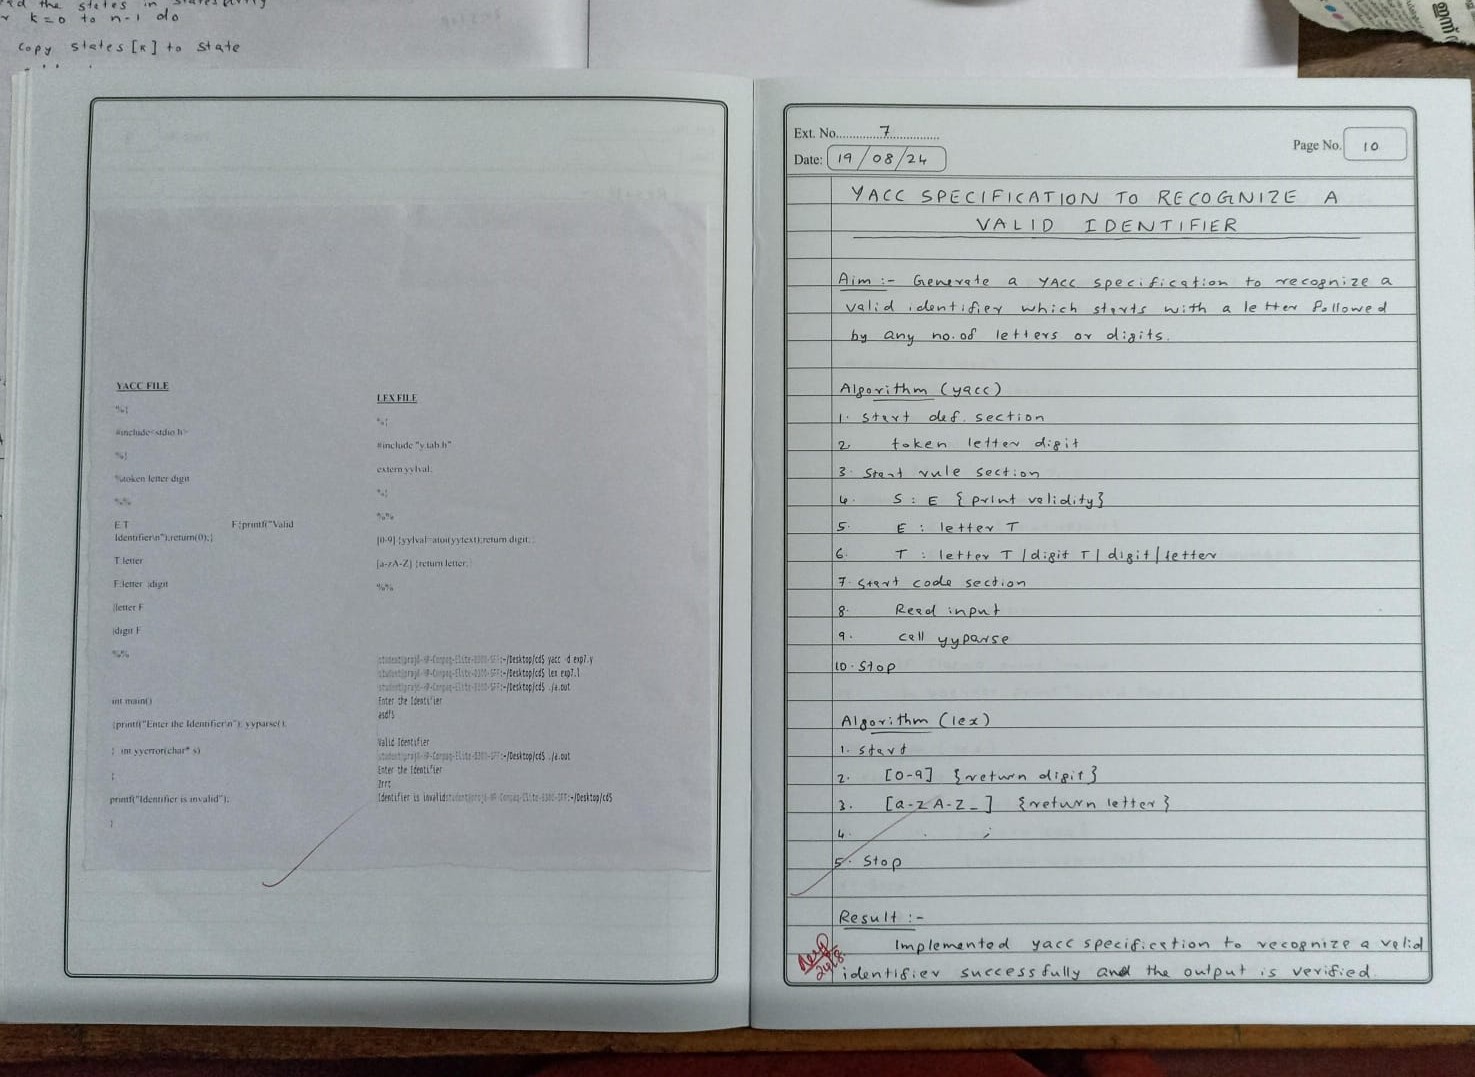 the states in
k=0 to n-1 do
copy states[k] to state
YACC FILE
%{
#include<stdio.h>
%}
%token letter digit
%%
E:T F{printf("Valid
Identifier\n");return(0);}
T:letter
F:letter |digit
|letter F
|digit F
%%
int main()
{printf("Enter the Identifier\n"); yyparse();
} int yyerror(char* s)
{
printf("Identifier is invalid");
}
LEX FILE
%{
#include "y.tab.h"
extern yylval;
%}
%%
[0-9] {yylval=atoi(yytext);return digit;}
[a-zA-Z] {return letter;}
%%
:~/Desktop/cd$ yacc -d exp7.y
:~/Desktop/cd$ lex exp7.l
:~/Desktop/cd$ ./a.out
Enter the Identifier
asdf5
Valid Identifier
:~/Desktop/cd$ ./a.out
Enter the Identifier
2rrt
Identifier is invalid :~/Desktop/cd$
Ext. No. 7
Page No. 10
Date: 19/08/24
YACC SPECIFICATION TO RECOGNIZE A
VALID IDENTIFIER
Aim :- Generate a YACC specification to recognize a
valid identifier which starts with a letter followed
by any no. of letters or digits.
Algorithm (yacc)
1. Start def. section
2. token letter digit
3. Start rule section
4. S : E {print validity}
5. E : letter T
6. T : letter T | digit T | digit | letter
7. Start code section
8. Read input
9. call yyparse
10. Stop
Algorithm (lex)
1. Start
2. [0-9] {return digit}
3. [a-zA-Z_] {return letter}
4. . ;
5. Stop
Result :-
Implemented yacc specification to recognize a valid
identifier successfully and the output is verified.